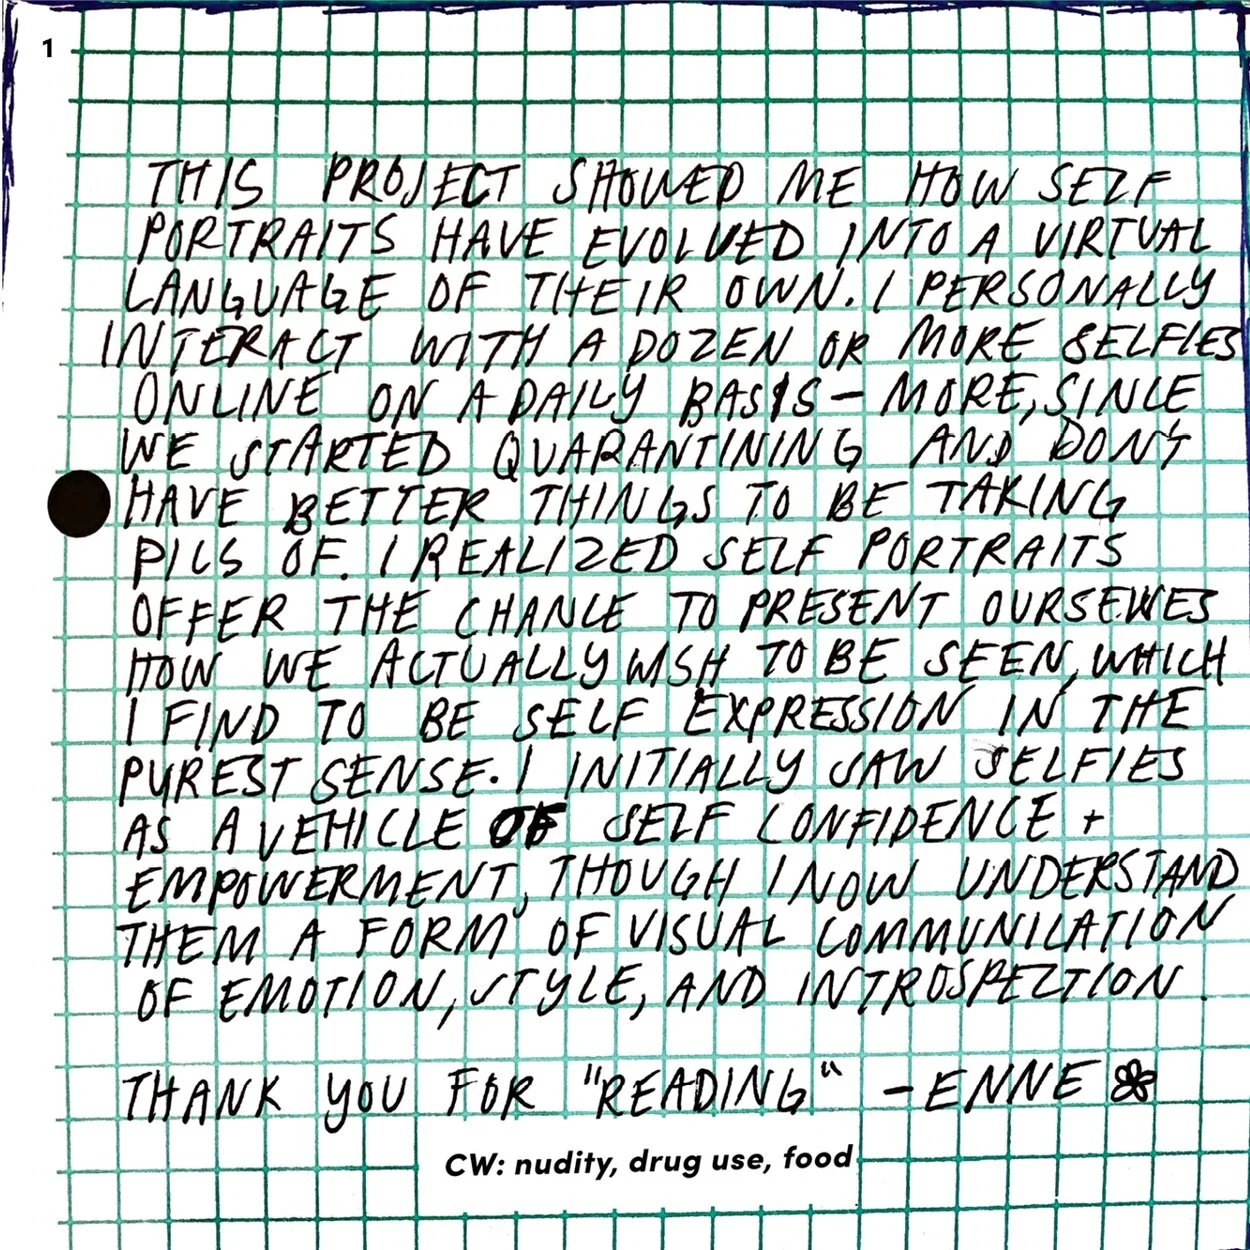 1
THIS PROJECT SHOWED ME HOW SELF
PORTRAITS HAVE EVOLVED INTO A VIRTUAL
LANGUAGE OF THEIR OWN. I PERSONALLY
INTERACT WITH A DOZEN OR MORE SELFIES
ONLINE ON A DAILY BASIS - MORE, SINCE
WE STARTED QUARANTINING AND DON'T
HAVE BETTER THINGS TO BE TAKING
PICS OF. I REALIZED SELF PORTRAITS
OFFER THE CHANCE TO PRESENT OURSELVES
HOW WE ACTUALLY WISH TO BE SEEN, WHICH
I FIND TO BE SELF EXPRESSION IN THE
PUREST SENSE. I INITIALLY SAW SELFIES
AS A VEHICLE OF SELF CONFIDENCE +
EMPOWERMENT, THOUGH I NOW UNDERSTAND
THEM A FORM OF VISUAL COMMUNICATION
OF EMOTION, STYLE, AND INTROSPECTION.
THANK YOU FOR "READING" - ENNE
CW: nudity, drug use, food